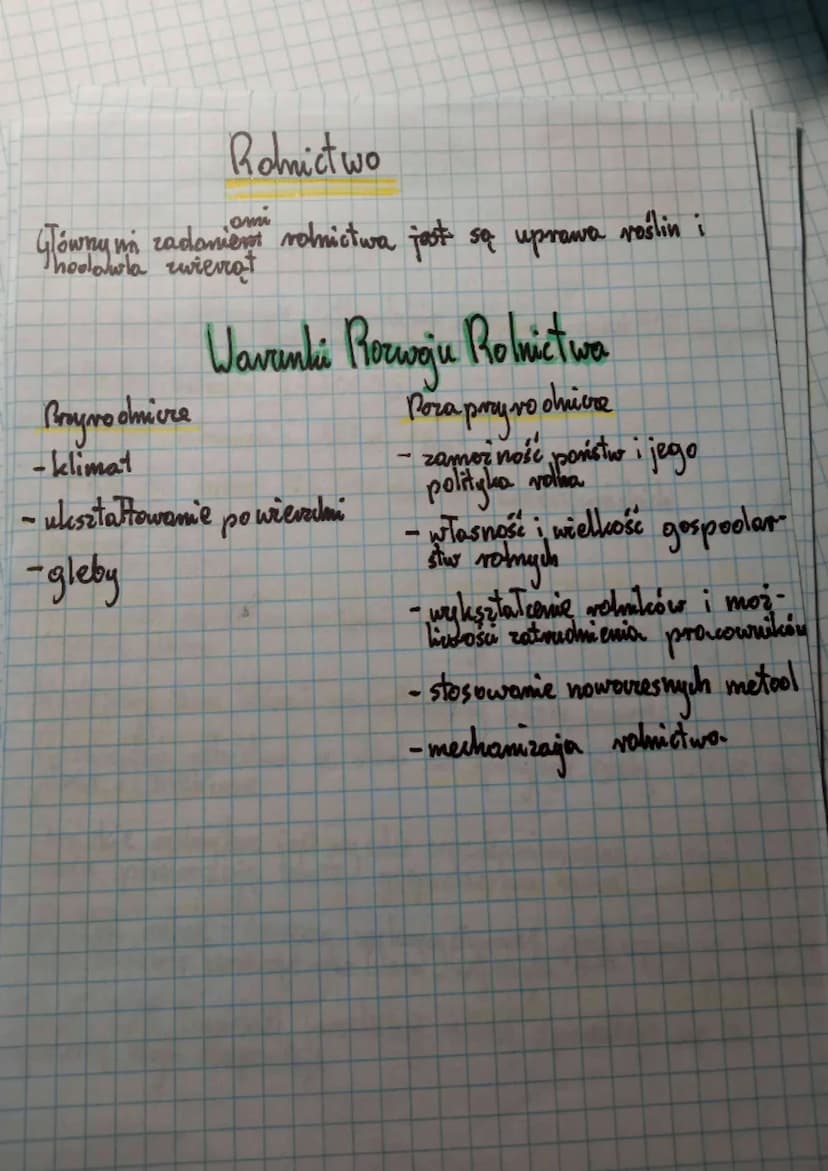 Rolnictwo
ami
Głównymi zadaniem rolnictwa jest są uprawa roślin i
hodowla zwierząt
Warunki Rozwoju Rolnictwa
Przyrodnicze
- klimat
- ukształtowanie powierzchni
- gleby
Poza przyrodnicze
- zamożność państw i jego
polityka rolna
- własność i wielkość gospodar-
stw rolnych
- wykształcenie rolników i moż-
liwości zatrudnienia pracowników
- stosowanie nowoczesnych metod
- mechanizacja rolnictwa